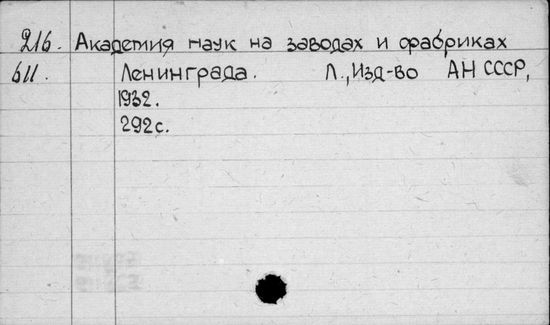 216. Академия наук на заводах и фабриках
611. Ленинграда. Л., Изд-во АН СССР,
1932.
292 с.